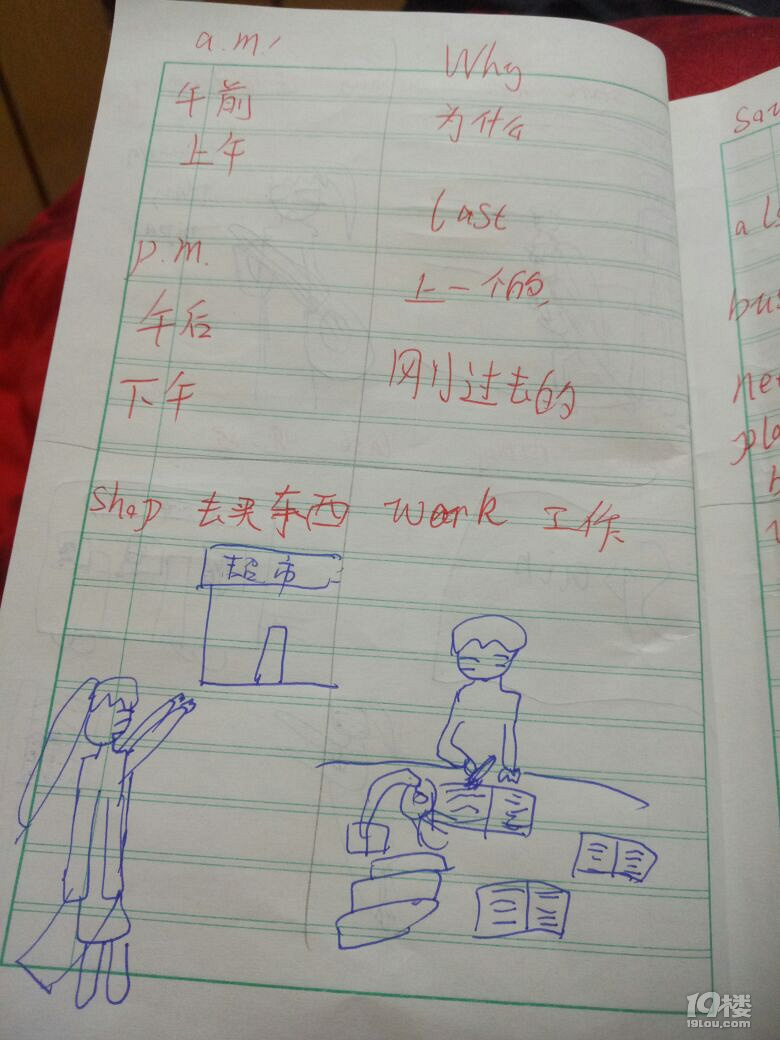 a.m.
午前
上午
p.m.
午后
下午
Why
为什么
last
上一个的
刚过去的
shop 去买东西 work 工作
超市
sa
als
bus
ne
pla
19楼
19lou.com